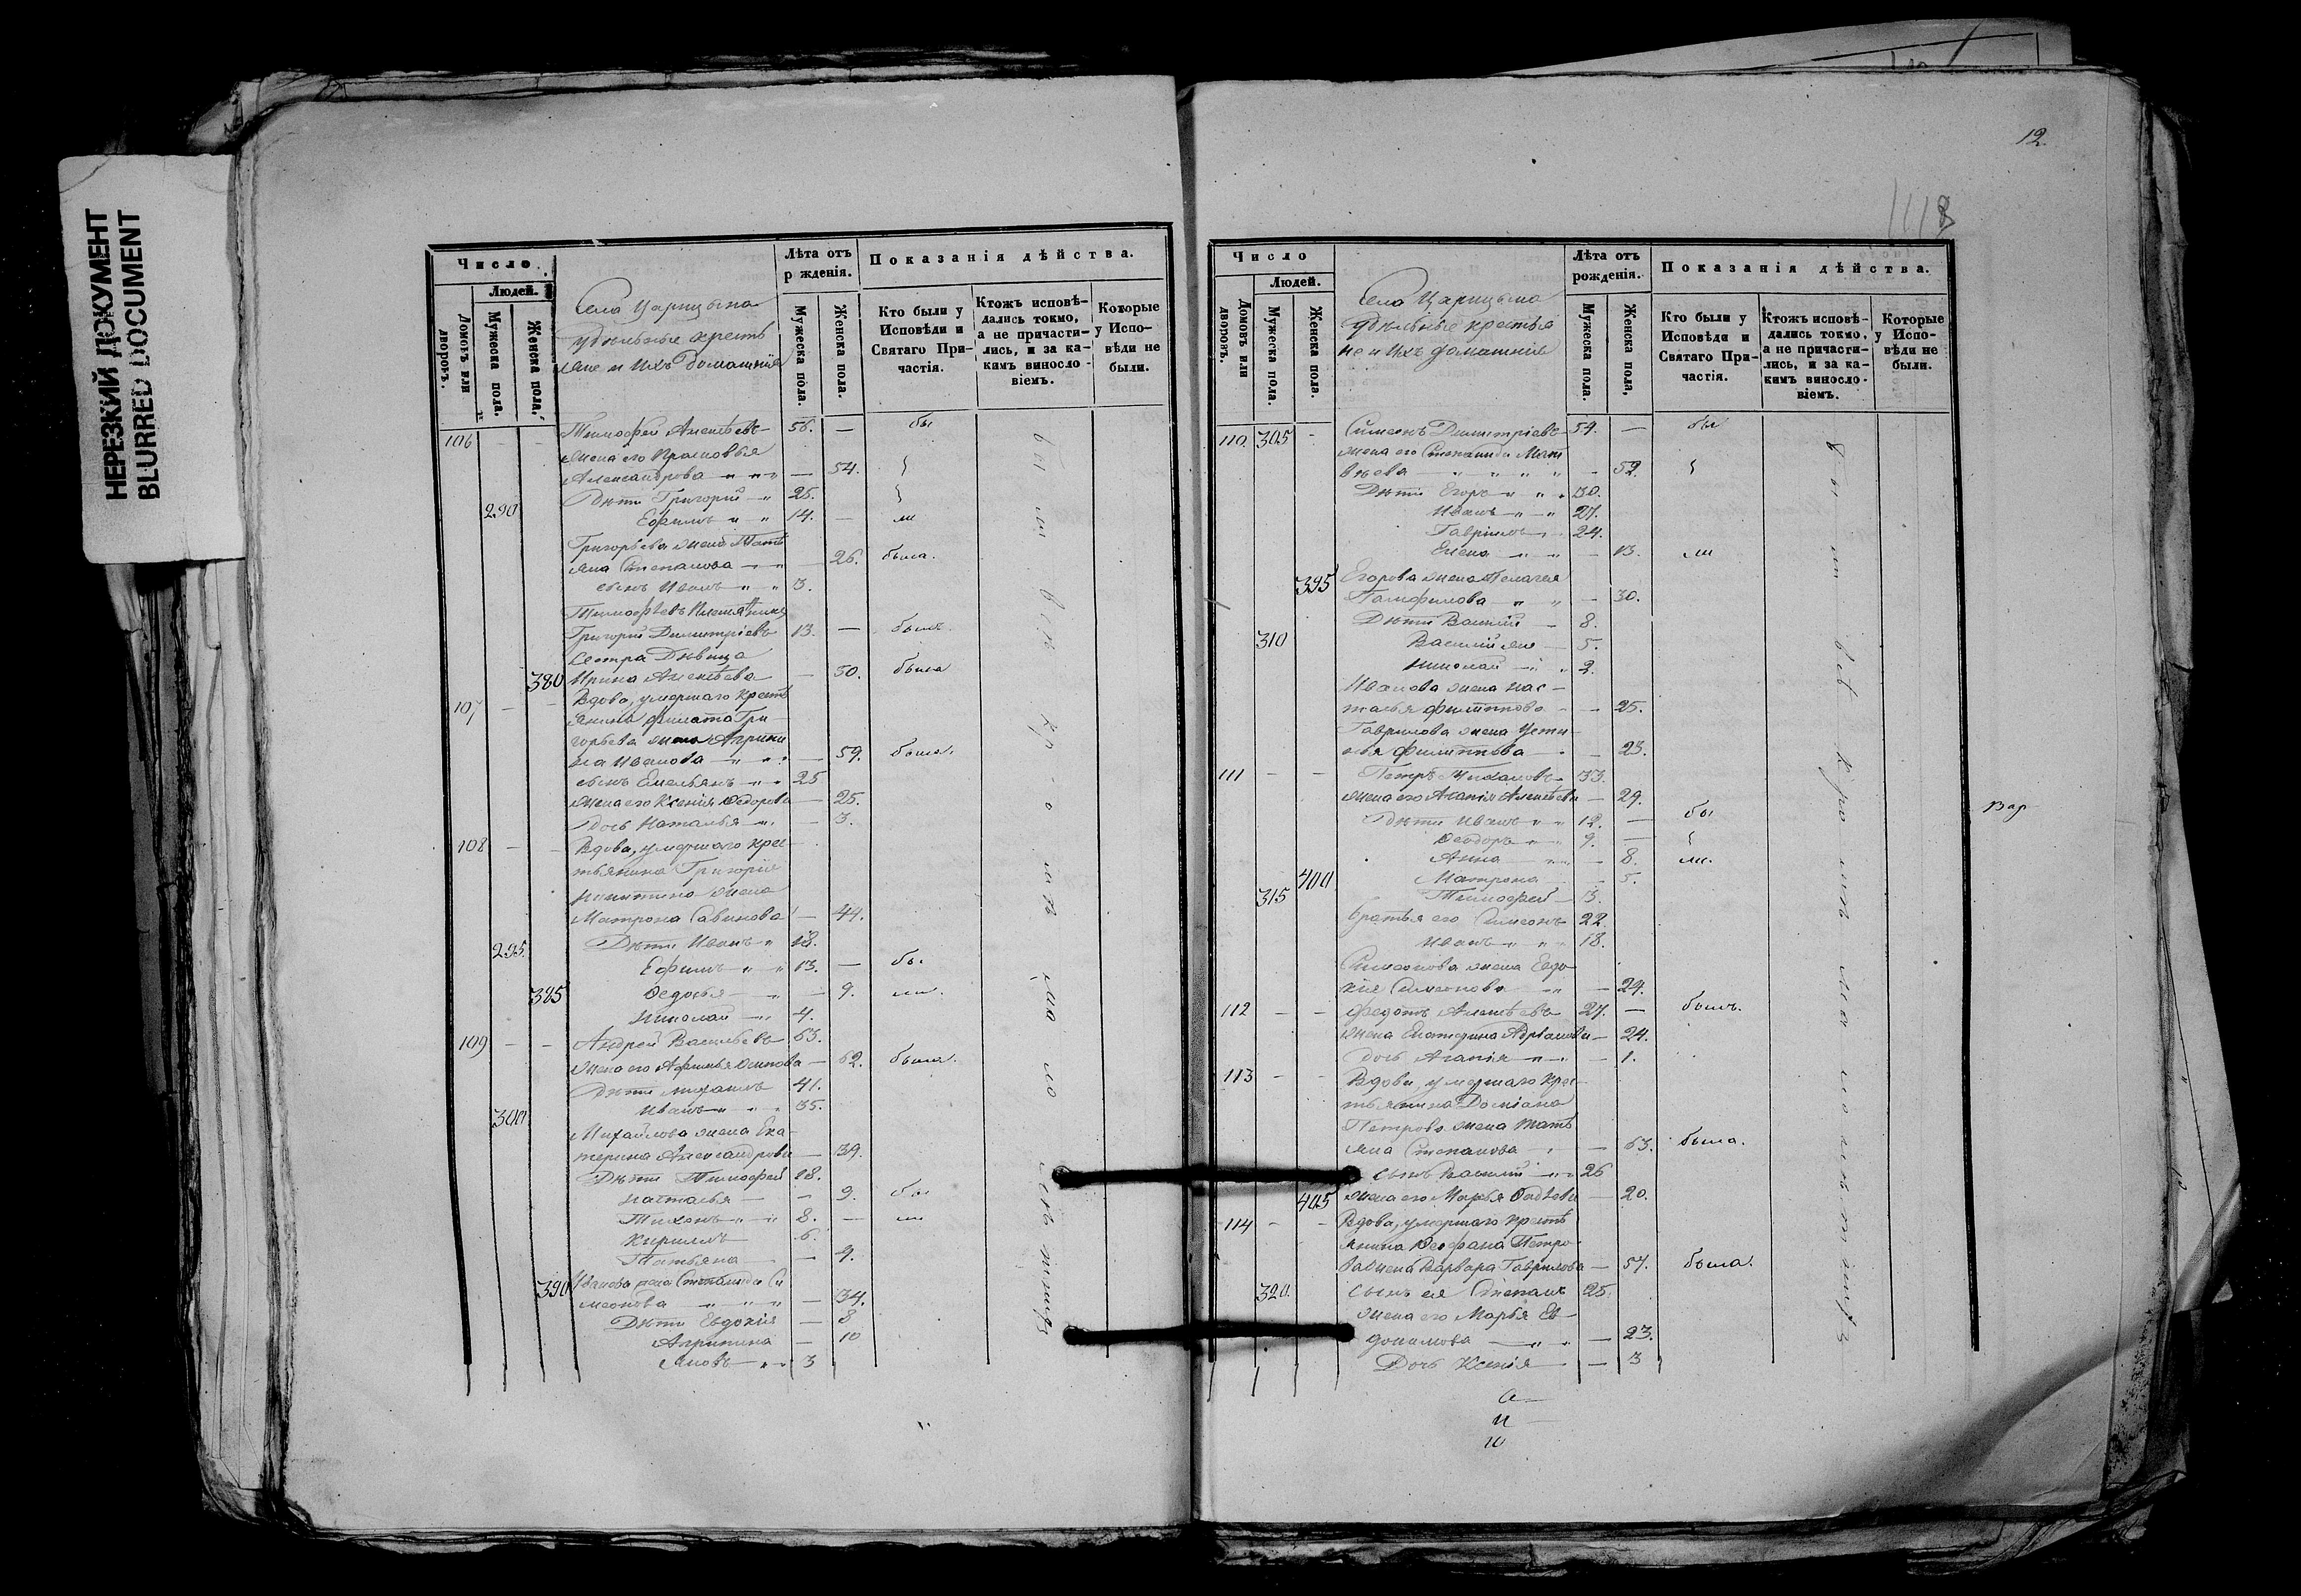 НЕРЕЗКИЙ ДОКУМЕНТ
BLURRED DOCUMENT
Число
Людей.
Домовъ или дворовъ.
Мужеска пола.
Женска пола.
Села Царицына
удѣльные кресть
яне и ихъ домашнія
Лѣта отъ
р жденія.
Мужеска пола.
Женска пола.
Показанія дѣйства.
Кто были у
Исповѣди и
Святаго При-
частія.
Ктожъ исповѣ-
дались токмо,
а не причасти-
лись, и за ка-
кимъ виносло-
віемъ.
Которые
у Испо-
вѣди не
были.
106 — — Тимофей Алексѣевъ 56. — бы
жена его Прасковья
Александрова — 54.
290 Дѣти Григорій 25.
Ефимъ 14. — ли
Григорьева жена Тать
яна Степанова 26. была.
сынъ Иванъ 3.
Григорій Димитріевъ 13. — былъ.
Сестра Дѣвица
380 Ирина Алексѣева — 50. была
107 — — Вдова, умершаго кресть
янина Филата Гри
горьева жена Агрипи
на Иванова — 59. была.
сынъ Емельянъ 25
жена его Ксенія Ѳедорова — 25.
дочь Наталья — 3.
108 — — Вдова, умершаго крес
тьянина Григорія
Никитина жена
Матрона Савинова — 44.
295. Дѣти Иванъ 18.
Ефимъ 13. — бы
385 Ѳедосья — 9. ли.
Николай 4.
109 — — Андрей Васильевъ 63.
жена его Афимья Осипова — 62. была.
Дѣти Михаилъ 41.
300 Иванъ 35.
Михайлова жена Ека
терина Александрова — 39.
Дѣти Тимофей 18.
Наталья — 9. бы
Тихонъ 8. — ли
Кириллъ 6.
Татьяна — 4.
390 Иванова жена Степанида Си
меонова — 34.
Дѣти Евдокія — 8
Агрипина — 10
Яковъ 3
12.
1118
Число
Людей.
Домовъ или дворовъ.
Мужеска пола.
Женска пола.
Села Царицына
удѣльные крестья
не и ихъ домашнія
Лѣта отъ
рожденія.
Мужеска пола.
Женска пола.
Показанія дѣйства.
Кто были у
Исповѣди и
Святаго При-
частія.
Ктожъ исповѣ-
дались токмо,
а не причасти-
лись, и за ка-
кимъ виносло-
віемъ.
Которые
у Испо-
вѣди не
были.
110. 305 — Симеонъ Димитріевъ 54. — бы
жена его Степанида Мат
вѣева — 52.
Дѣти Егоръ 30.
Иванъ 27.
Гавріилъ 24.
Елена — 13. ли
395 Егорова жена Пелагея
Памфилова — 30.
Дѣти Василій 8.
310 Василій же 5.
Николай 2.
Иванова жена Нас
тасья Филиппова — 25.
Гаврилова жена Усти
нья Филиппова — 23.
111 — — Петръ Михаиловъ 33.
жена его Агапія Алексѣева — 29.
Дѣти Иванъ 12. — бы
Ѳеодоръ 9. —
Анна — 8. ли.
400 Матрона — 5.
315 Тимофей 3.
братья его Симеонъ 22.
Иванъ 18.
Симеонова жена Евдо
кія Симеонова — 24.
112 — — Федотъ Алексѣевъ 27. — былъ.
жена Екатерина Адріанова — 24.
дочь Агапія — 1.
113 — — Вдова, умершаго крес
тьянина Доміана
Петрова жена Тать
яна Степанова — 63. была.
сынъ Василій 26
405 жена его Марья — 20.
114 — — Вдова, умершаго кресть
янина Ѳеофана Петро
ва жена Варвара Гаврилова — 54. была.
320. сынъ ея Степанъ 25.
жена его Марья Ев
докимова — 23.
Дочь Ксенія — 3